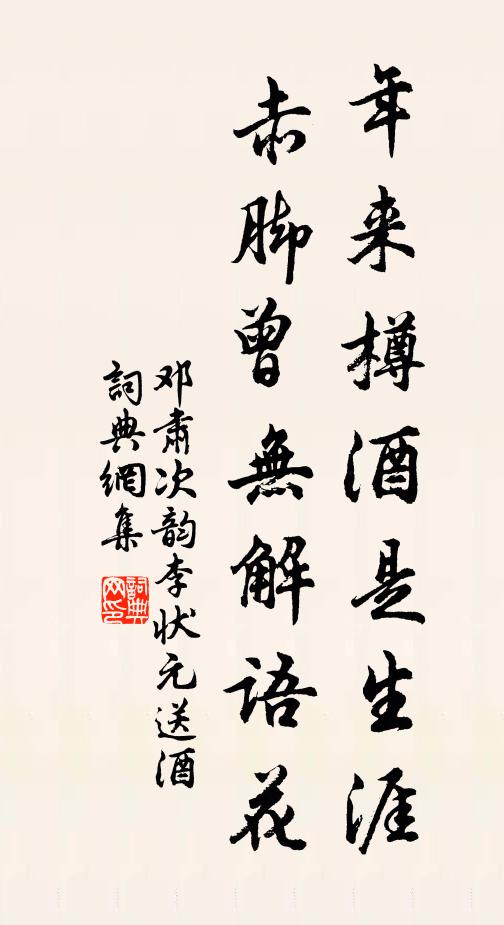 年来樽酒是生涯
赤脚曾無解语花
邓肅次韵李状元送酒
詞典網集
詞典網印